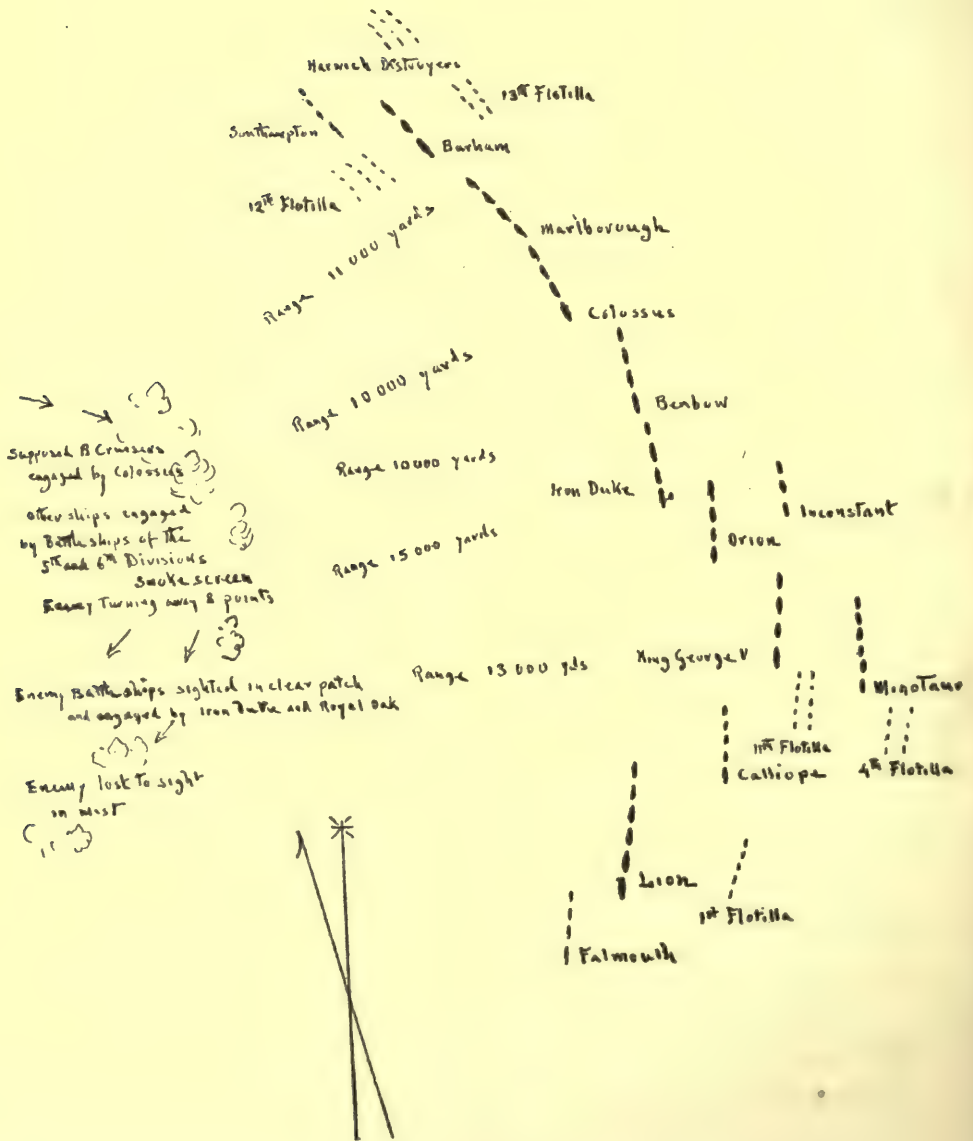 Harwich Distroyers
13th Flotilla
Southampton
Barham
12th Flotilla
Marlborough
Range 11000 yards
Colossus
Range 10000 yards
Benbow
Supposed B Cruisers
engaged by Colossus
Range 10000 yards
Iron Duke
Inconstant
Orion
Other ships engaged
by Battleships of the
5th and 6th Divisions
Smoke screen
Range 15000 yards
Enemy Turning away 8 points
Range 13000 yds
King George V
Minotaur
Enemy Battleships sighted in clear patch
and engaged by Iron Duke and Royal Oak
11th Flotilla
Calliope
4th Flotilla
Enemy lost to sight
in mist
Lion
1st Flotilla
Falmouth